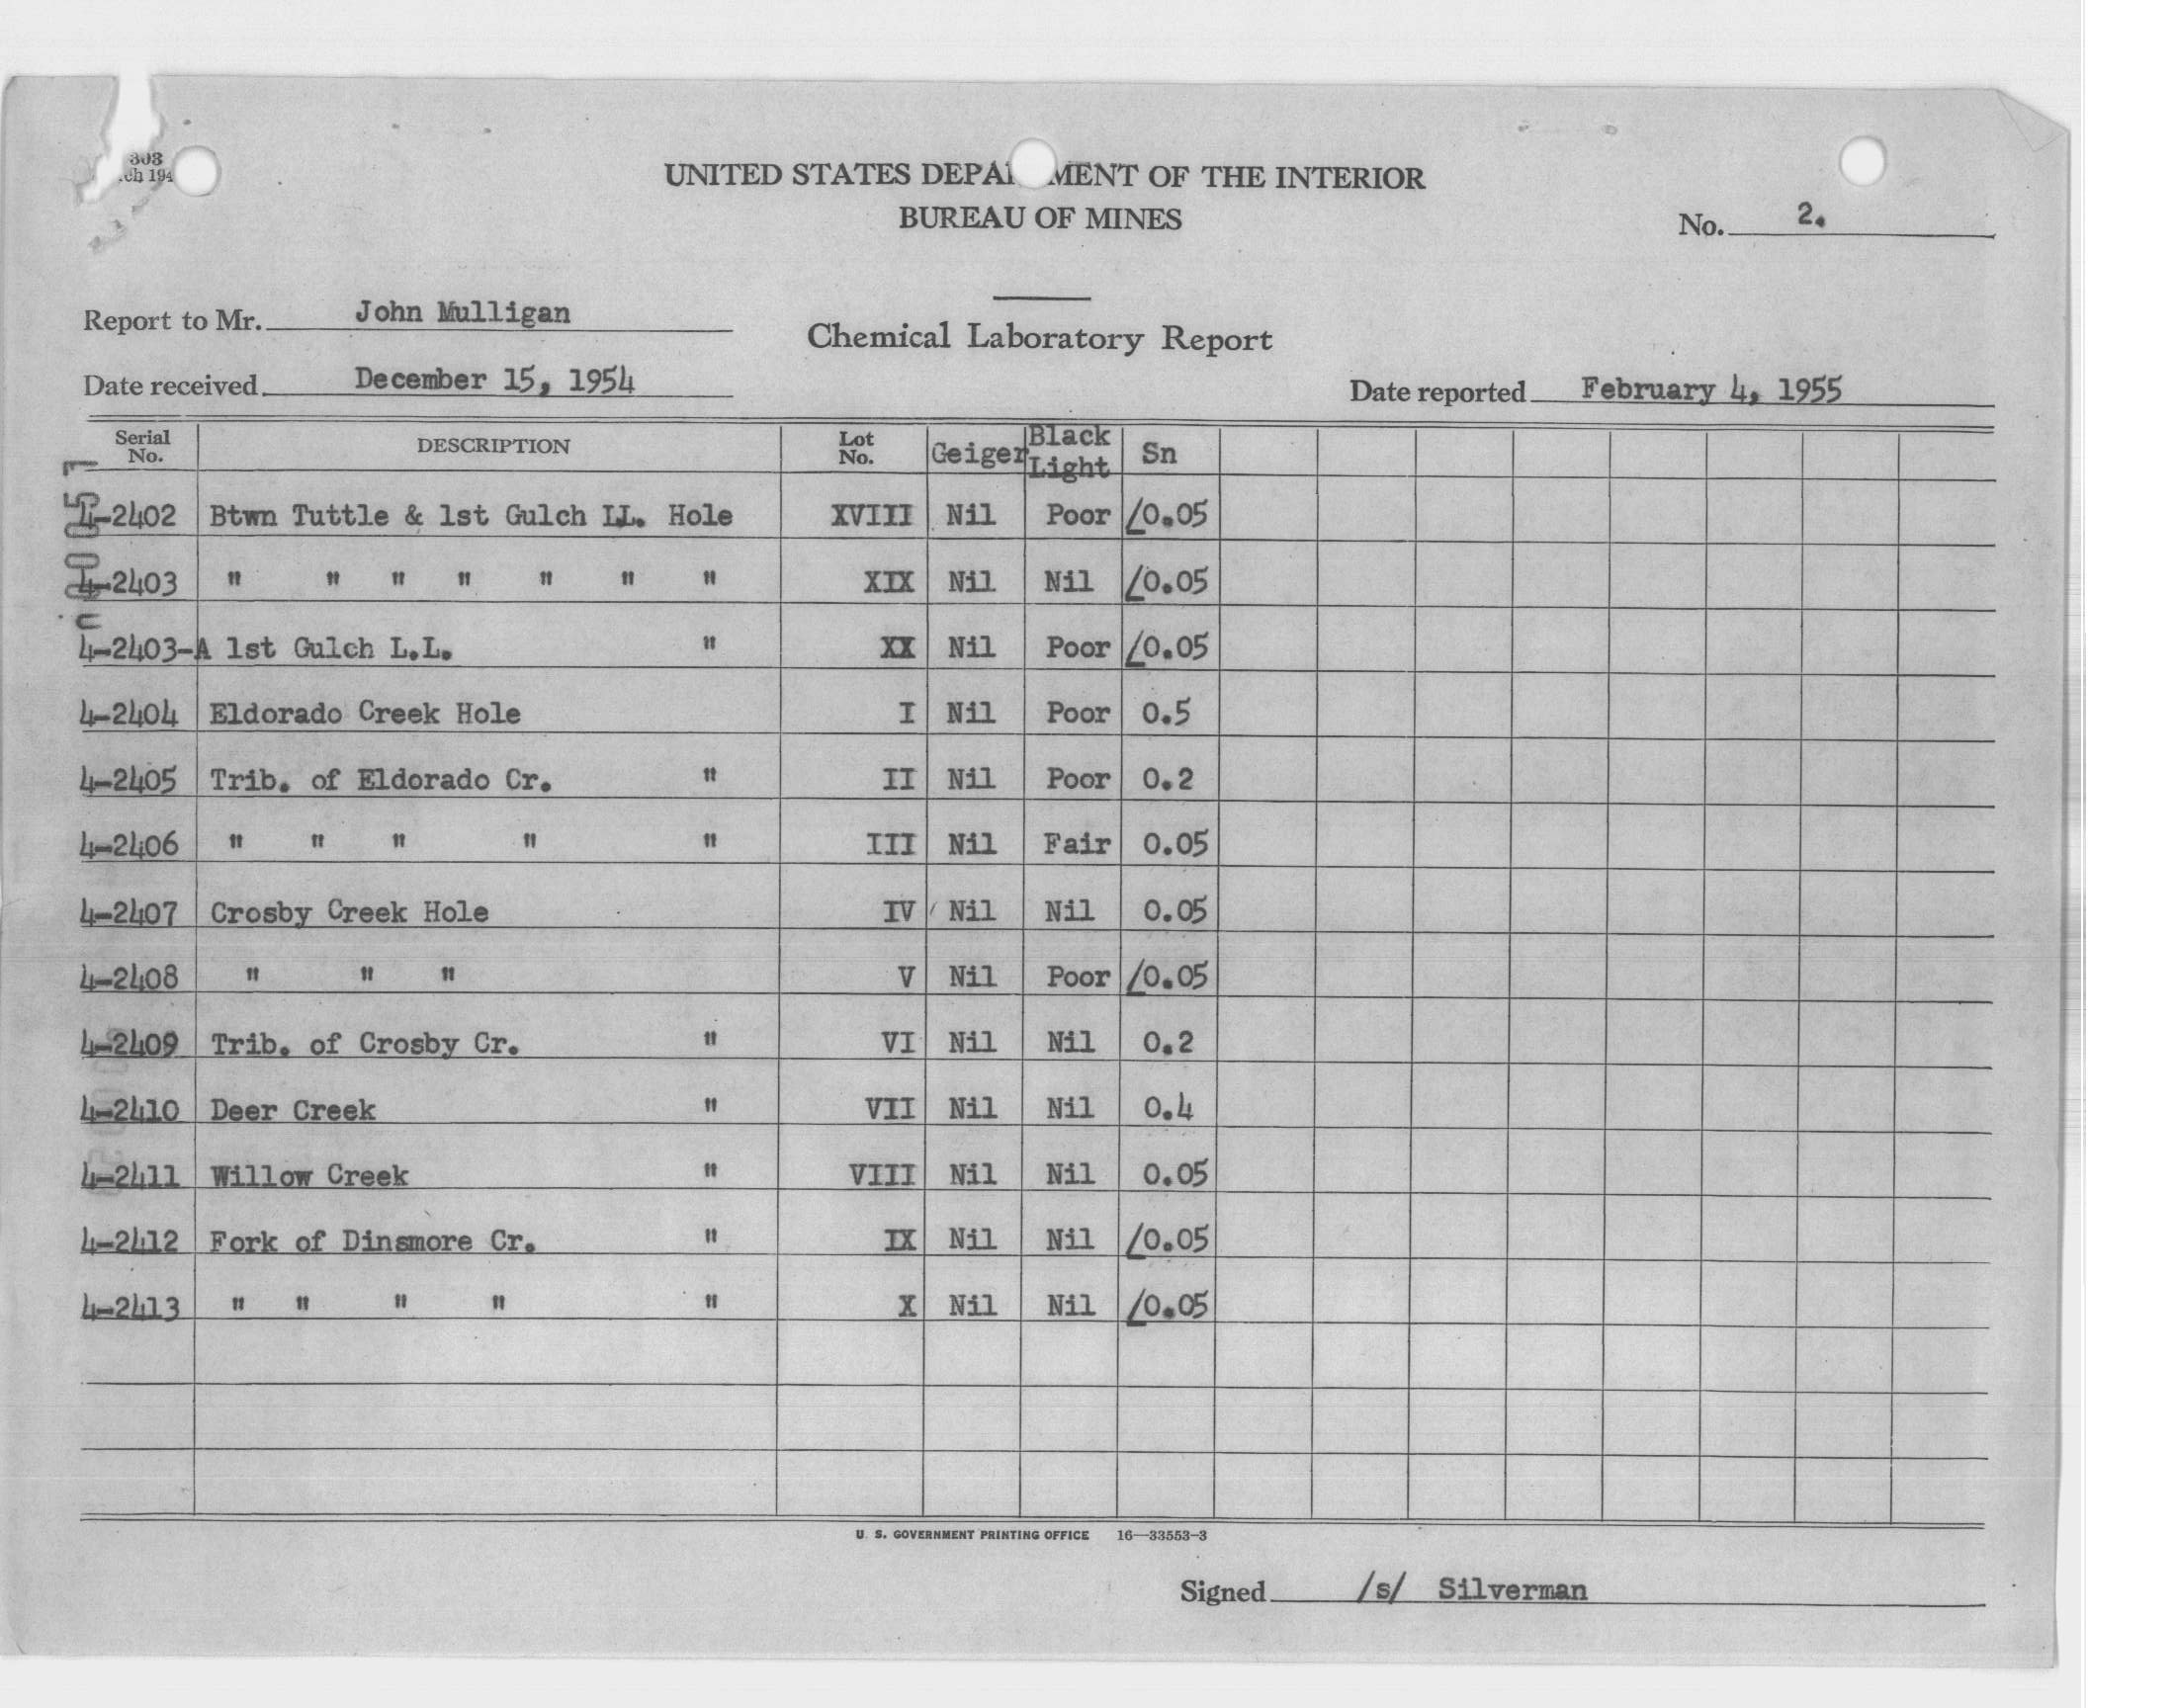 303
ch 194
UNITED STATES DEPA MENT OF THE INTERIOR
BUREAU OF MINES
No. 2.
Report to Mr. John Mulligan
Chemical Laboratory Report
Date received December 15, 1954
Date reported February 4, 1955
Serial No. DESCRIPTION Lot No. Geiger Black Light Sn
4-2402 Btwn Tuttle & 1st Gulch LL. Hole XVIII Nil Poor /0.05
4-2403 " " " " " " " XIX Nil Nil /0.05
4-2403-A 1st Gulch L.L. " XX Nil Poor /0.05
4-2404 Eldorado Creek Hole I Nil Poor 0.5
4-2405 Trib. of Eldorado Cr. " II Nil Poor 0.2
4-2406 " " " " " III Nil Fair 0.05
4-2407 Crosby Creek Hole IV Nil Nil 0.05
4-2408 " " " V Nil Poor /0.05
4-2409 Trib. of Crosby Cr. " VI Nil Nil 0.2
4-2410 Deer Creek " VII Nil Nil 0.4
4-2411 Willow Creek " VIII Nil Nil 0.05
4-2412 Fork of Dinsmore Cr. " IX Nil Nil /0.05
4-2413 " " " " " X Nil Nil /0.05
U. S. GOVERNMENT PRINTING OFFICE 16—33553-3
Signed /s/ Silverman